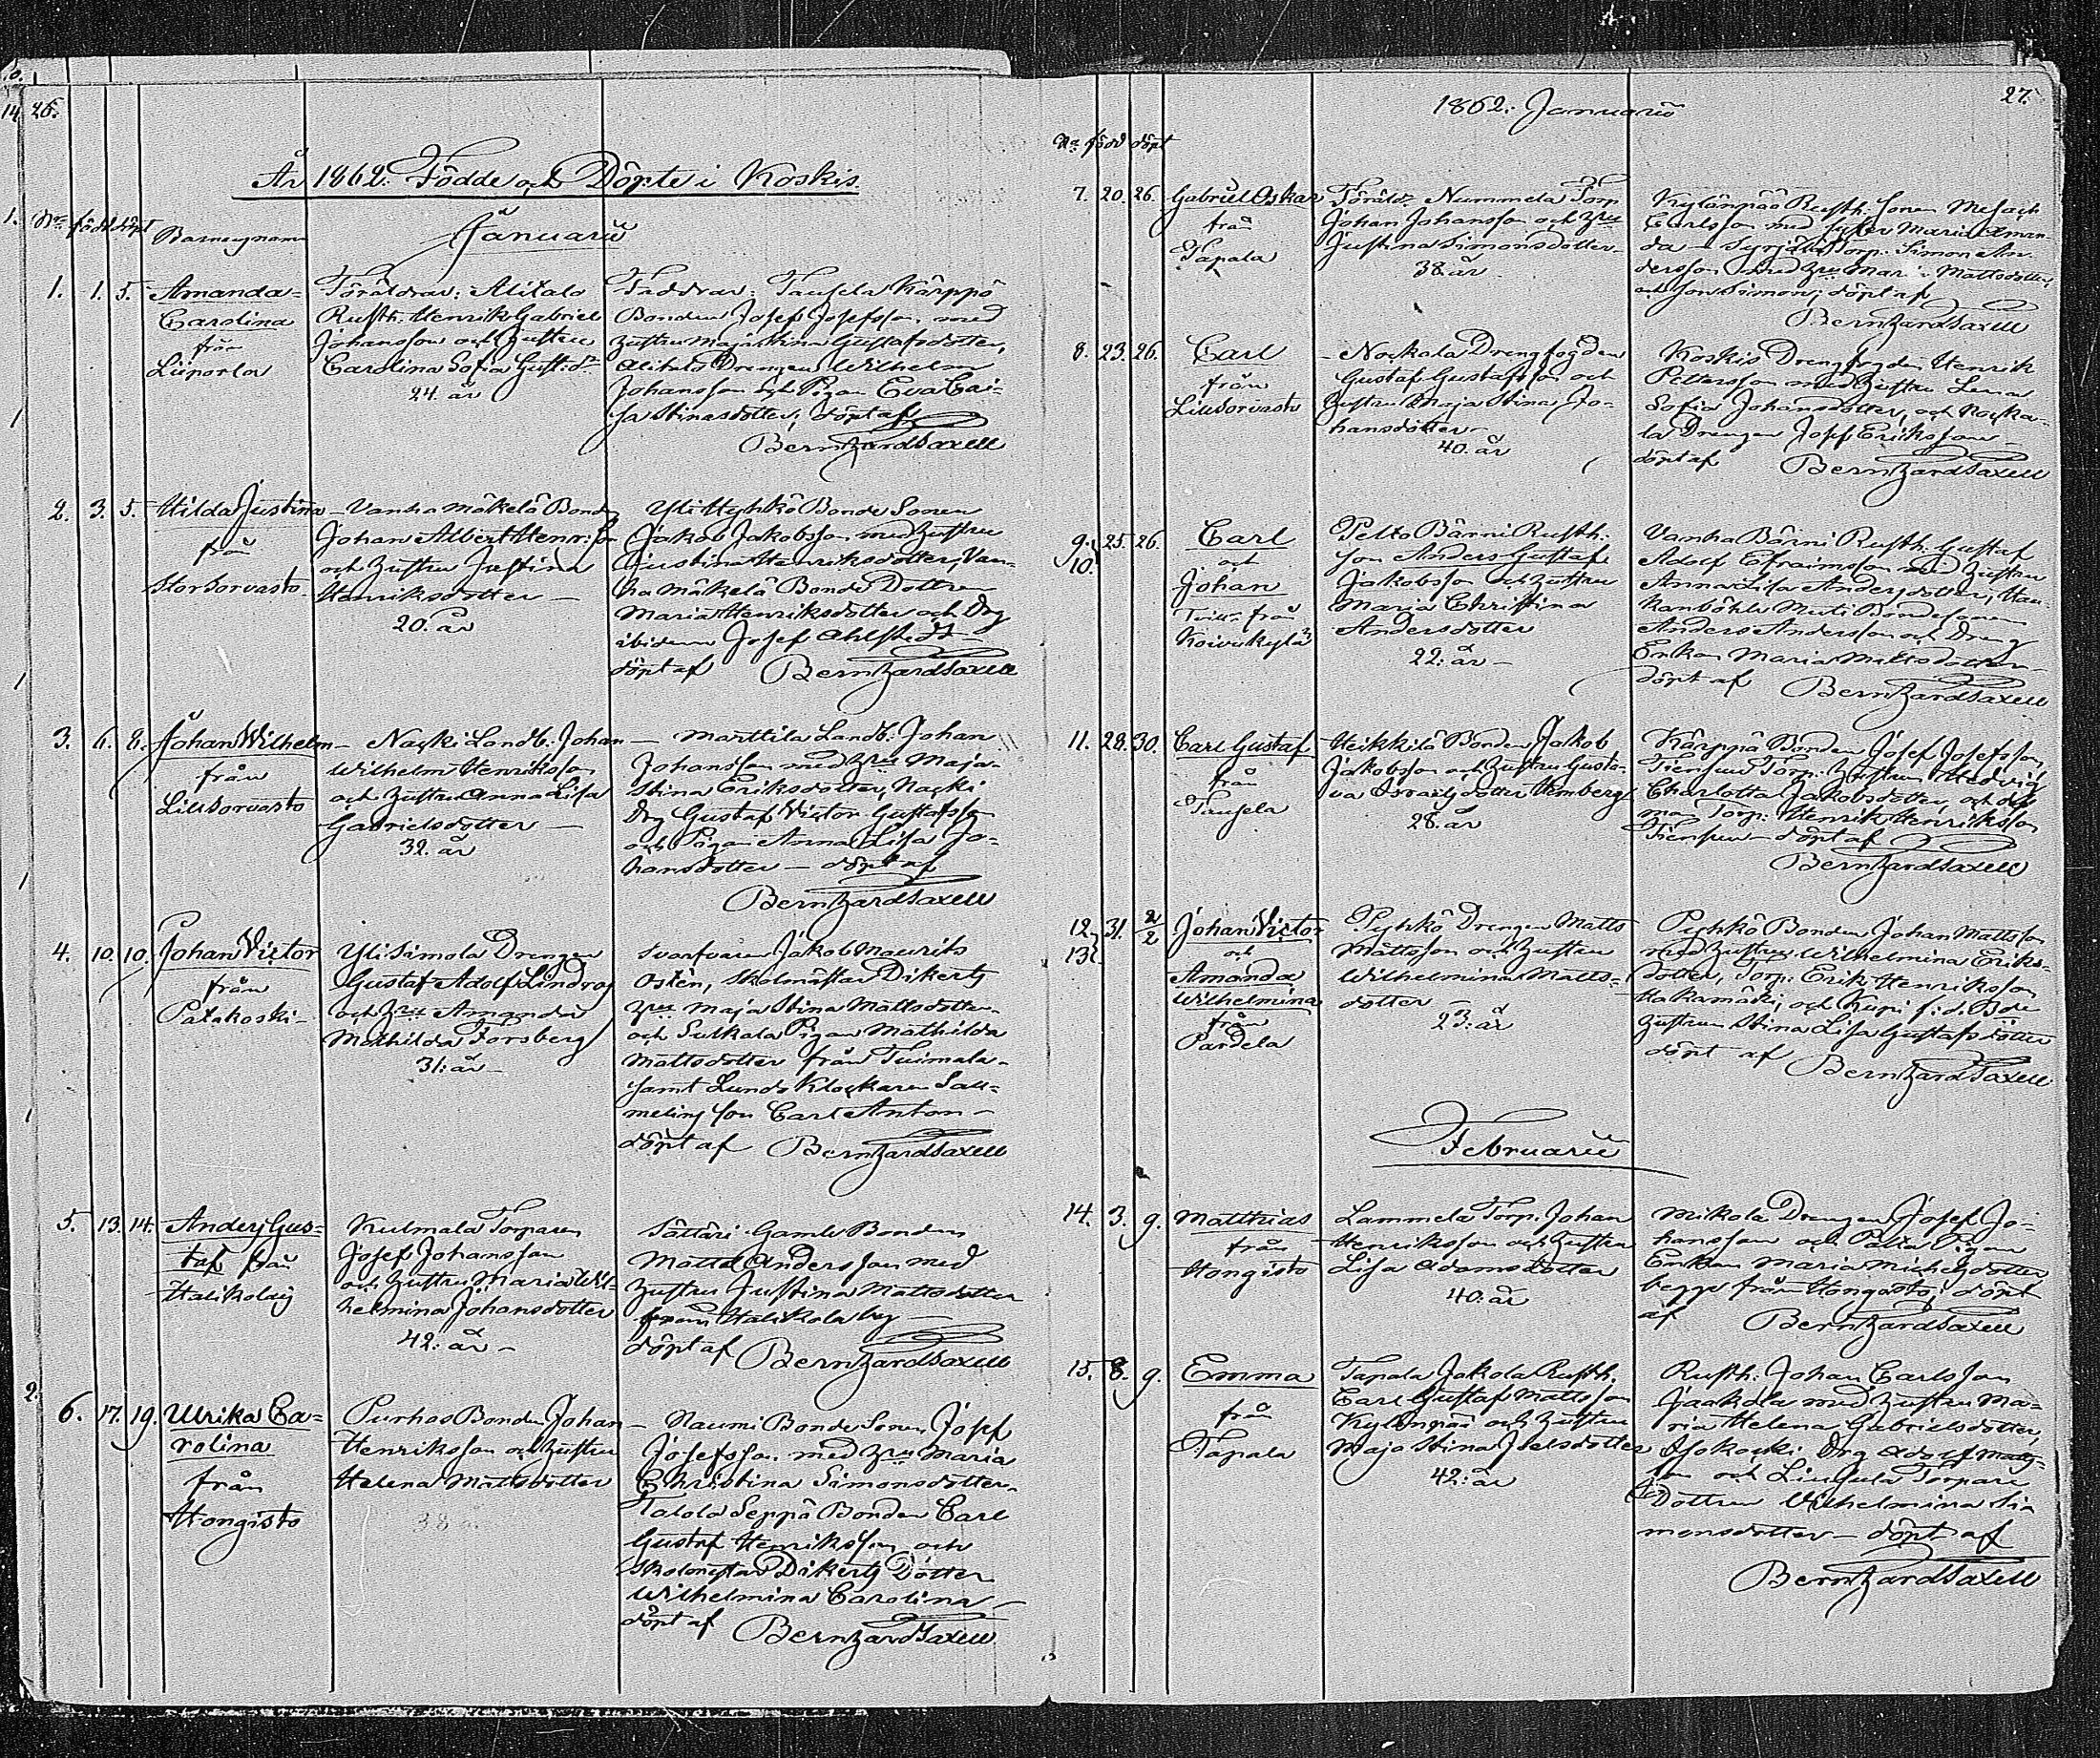 26.
År 1862. Födde och Döpte i Koskis
No född döpt Barnens namn
Januarii
1. 1. 5. Amanda
Carolina
från
Liiporla
Föräldrar: Alitalo
Rusth. Henrik Gabriel
Johansson och hustru
Carolina Sofia Gust:dr
24. år
Faddrar: Tausela Kärppä
Bonden Josef Josefsson med
hustru Maja Stina Gustafsdotter,
Alitalo Drengen Wilhelm
Johansson och Pigan Eva Cai-
sa Stinasdotter; döpt af
Bernhard Saxell
2. 3. 5. Hilda Justina
från
Storsorvasto
Vanha Mäkelä Bonden
Johan Albert Henr:son
och hustru Justina
Henriksdotter
20. år
Yli Hyhkö Bonde Sonen
Jakob Jakobsson med hustru
Justina Henriksdotter, Van-
ha Mäkelä Bonde Dottren
Maria Henriksdotter och Drg
ibidem Josef Ahlstedt
döpt af Bernhard Saxell
3. 6. 8. Johan Wilhelm
från
Lillsorvasto
Nacki Landb. Johan
Wilhelm Henriksson
och hustru Anna Lisa
Gabrielsdotter
32. år
Marttila Landb. Johan
Johansson med hru Maja
Stina Eriksdotter, Nacki
Drg Gustaf Victor Gustafsson
och Pigan Anna Lisa Jo-
hansdotter döpt af
Bernhard Saxell
4. 10. 10. Johan Victor
från
Patakoski
Yli Simola Drengen
Gustaf Adolf Lindroos
och hru Amanda
Mathilda Forsberg
31. år
Svarfvaren Jakob Maurits
Osten, Skolmästar Dikerts
hru Maja Stina Mattsdotter
och Sukala Pigan Mathilda
Mattsdotter från Tuimala
samt Lunds Klockaren Sal-
melins son Carl Anton
döpt af Bernhard Saxell
5. 13. 14. Anders Gus-
taf från
Halikola by
Kulmala Torparen
Josef Johansson
och hustru Maria Wil-
helmina Johansdotter
42. år
Sättäri Gamle Bonden
Matts Andersson med
hustru Justina Mattsdotter
från Halikola by
döpt af Bernhard Saxell
6. 17. 19. Ulrika Ca-
rolina
från
Hongisto
Purhos Bonden Johan
Henriksson och hustru
Helena Mattsdotter
38
Naumi Bonde Sonen Josef
Josefsson med hru Maria
Christina Simonsdotter
Talola Seppä Bonden Carl
Gustaf Henriksson och
Skolmästar Dikerts Dotter
Wilhelmina Carolina
döpt af Bernhard Saxell
1862. Januarii
27.
No född döpt
7. 20. 26. Gabriel Oskar
från
Tapala
Föräld: Nummela Torp
Johan Johansson och hru
Justina Simonsdotter
38 år
Kylänpää Rusth. Sonen
Carlsson med syster Maria Aman-
da Torp. Simon An-
dersson med hru Maria Mattsdotter
och son Simon; döpt af
Bernhard Saxell
8. 23. 26. Carl
från
Lillsorvasto
Nockala Drengfogden
Gustaf Gustafsson och
hustru Maja Stina Jo-
hansdotter
40. år
Koskis Drengfogden Henrik
Pettersson med hustru Lena
Sofia Johansdotter, och Nocka-
la Drengen Josef Eriksson
döpt af Bernhard Saxell
9. 10. 25. 26. Carl
och
Johan
Tvill. från
Koivukylä
Pelto Bärni Rusth.
Son Anders Gustaf
Jakobsson och hustru
Maria Christina
Andersdotter
22. år
Vanha Bärni Rusth. Gustaf
Adolf Efraimsson med hustru
Anna Lisa Andersdotter, Hau-
Bondesonen
Anders Andersson och Dreng
Enkan Maria Mattsdotter
döpt af Bernhard Saxell
11. 28. 30. Carl Gustaf
från
Tausela
Heikkilä Bonden Jakob
Jakobsson och hustru Gusta-
va Israelsdotter Hemberg
28. år
Kärppä Bonden Josef Josefsson
Tiensuu Torp. hustrun Hedvig
Charlotta Jakobsdotter och
Torp. Henrik Henriksson
Tiensuu döpt af
Bernhard Saxell
12. 13. 31. 2/2 Johan Victor
och
Amanda
Wilhelmina
från
Pardela
Pyhkö Drengen Matts
Mattsson och hustru
Wilhelmina Matts-
dotter
23. år
Pyhkö Bonden Johan Mattsson
med hustru Wilhelmina Eriks-
dotter, Torp. Erik Henriksson
Hakamäki, och f.d. Bde
hustrun Stina Lisa Gustafsdotter
döpt af Bernhard Saxell
Februarii
14. 3. 9. Matthias
från
Hongisto
Lammela Torp. Johan
Henriksson och hustru
Lisa Adamsdotter
40. år
Mikola Drengen Josef Jo-
hansson och Pigan
Enkan Maria Michelsdotter
begge från Hongisto; döpt
af Bernhard Saxell
15. 8. 9. Emma
från
Tapala
Tapala Jakola Rusth.
Carl Gustaf Mattsson
Kylänpää och hustru
Maja Stina Joelsdotter
42. år
Rusth. Johan Carlsson
Jaakola med hustru Ma-
ria Helena Gabrielsdotter,
Isokoski Drg Adolf Matts-
son och Torpare
Dottren Wilhelmina Si-
monsdotter döpt af
Bernhard Saxell